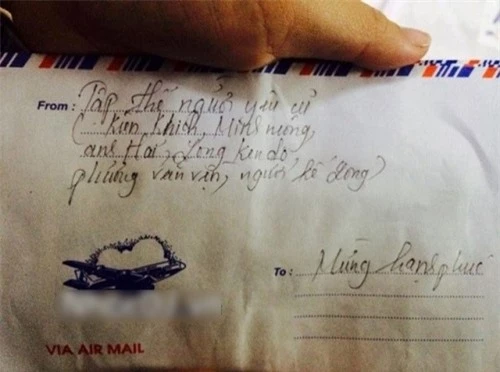 From: Tập thể người yêu cũ
(Kiên Khích, Minh mộng,
anh Hải, Long kendo,
phương văn vện, người kế Long)
To: Mừng hạnh phúc
VIA AIR MAIL